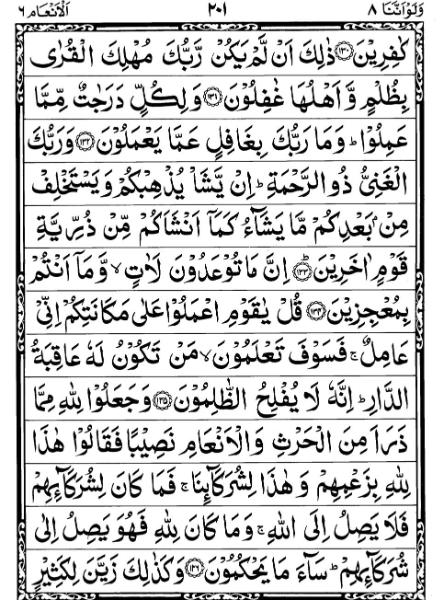 وَلَوْ اَنَّنَا ٨ ٢٠١ اَلْاَنْعَام ٦
كٰفِرِيْنَ ﴿١٣٠﴾ ذٰلِكَ اَنْ لَّمْ يَكُنْ رَّبُّكَ مُهْلِكَ الْقُرٰى
بِظُلْمٍ وَّ اَهْلُهَا غٰفِلُوْنَ ﴿١٣١﴾ وَلِكُلٍّ دَرَجٰتٌ مِّمَّا
عَمِلُوْا ؕ وَمَا رَبُّكَ بِغَافِلٍ عَمَّا يَعْمَلُوْنَ ﴿١٣٢﴾ وَرَبُّكَ
الْغَنِىُّ ذُو الرَّحْمَةِ ؕ اِنْ يَّشَاْ يُذْهِبْكُمْ وَيَسْتَخْلِفْ
مِنْۢ بَعْدِكُمْ مَّا يَشَآءُ كَمَاۤ اَنْشَاَكُمْ مِّنْ ذُرِّيَّةِ
قَوْمٍ اٰخَرِيْنَ ﴿١٣٣﴾ ؕ اِنَّ مَا تُوْعَدُوْنَ لَاٰتٍ ۙ وَّمَاۤ اَنْتُمْ
بِمُعْجِزِيْنَ ﴿١٣٤﴾ قُلْ يٰقَوْمِ اعْمَلُوْا عَلٰى مَكَانَتِكُمْ اِنِّىْ
عَامِلٌ ۚ فَسَوْفَ تَعْلَمُوْنَ ۙ مَنْ تَكُوْنُ لَهٗ عَاقِبَةُ
الدَّارِ ؕ اِنَّهٗ لَا يُفْلِحُ الظّٰلِمُوْنَ ﴿١٣٥﴾ وَجَعَلُوْا لِلّٰهِ مِمَّا
ذَرَاَ مِنَ الْحَرْثِ وَالْاَنْعَامِ نَصِيْبًا فَقَالُوْا هٰذَا
لِلّٰهِ بِزَعْمِهِمْ وَ هٰذَا لِشُرَكَآئِنَا ۚ فَمَا كَانَ لِشُرَكَآئِهِمْ
فَلَا يَصِلُ اِلَى اللّٰهِ ۚ وَمَا كَانَ لِلّٰهِ فَهُوَ يَصِلُ اِلٰى
شُرَكَآئِهِمْ ؕ سَآءَ مَا يَحْكُمُوْنَ ﴿١٣٦﴾ وَكَذٰلِكَ زَيَّنَ لِكَثِيْرٍ